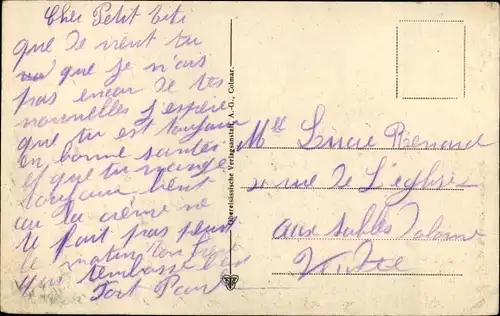 Cher Petit titi
que de vient tu
que je n'ais
pas encor de tes
nouvelles j'espère
que tu est toujour
en bonne santée
et que tu mange
toujour bien
la crème ne
te fait pas peur
le matin ton
qui t'embrasse bien
fort Paul
Oberelsässische Verlagsanstalt A.-G., Colmar.
Mlle Lucie Renard
rue de L'église
aux Sables Dolonne
Vendée